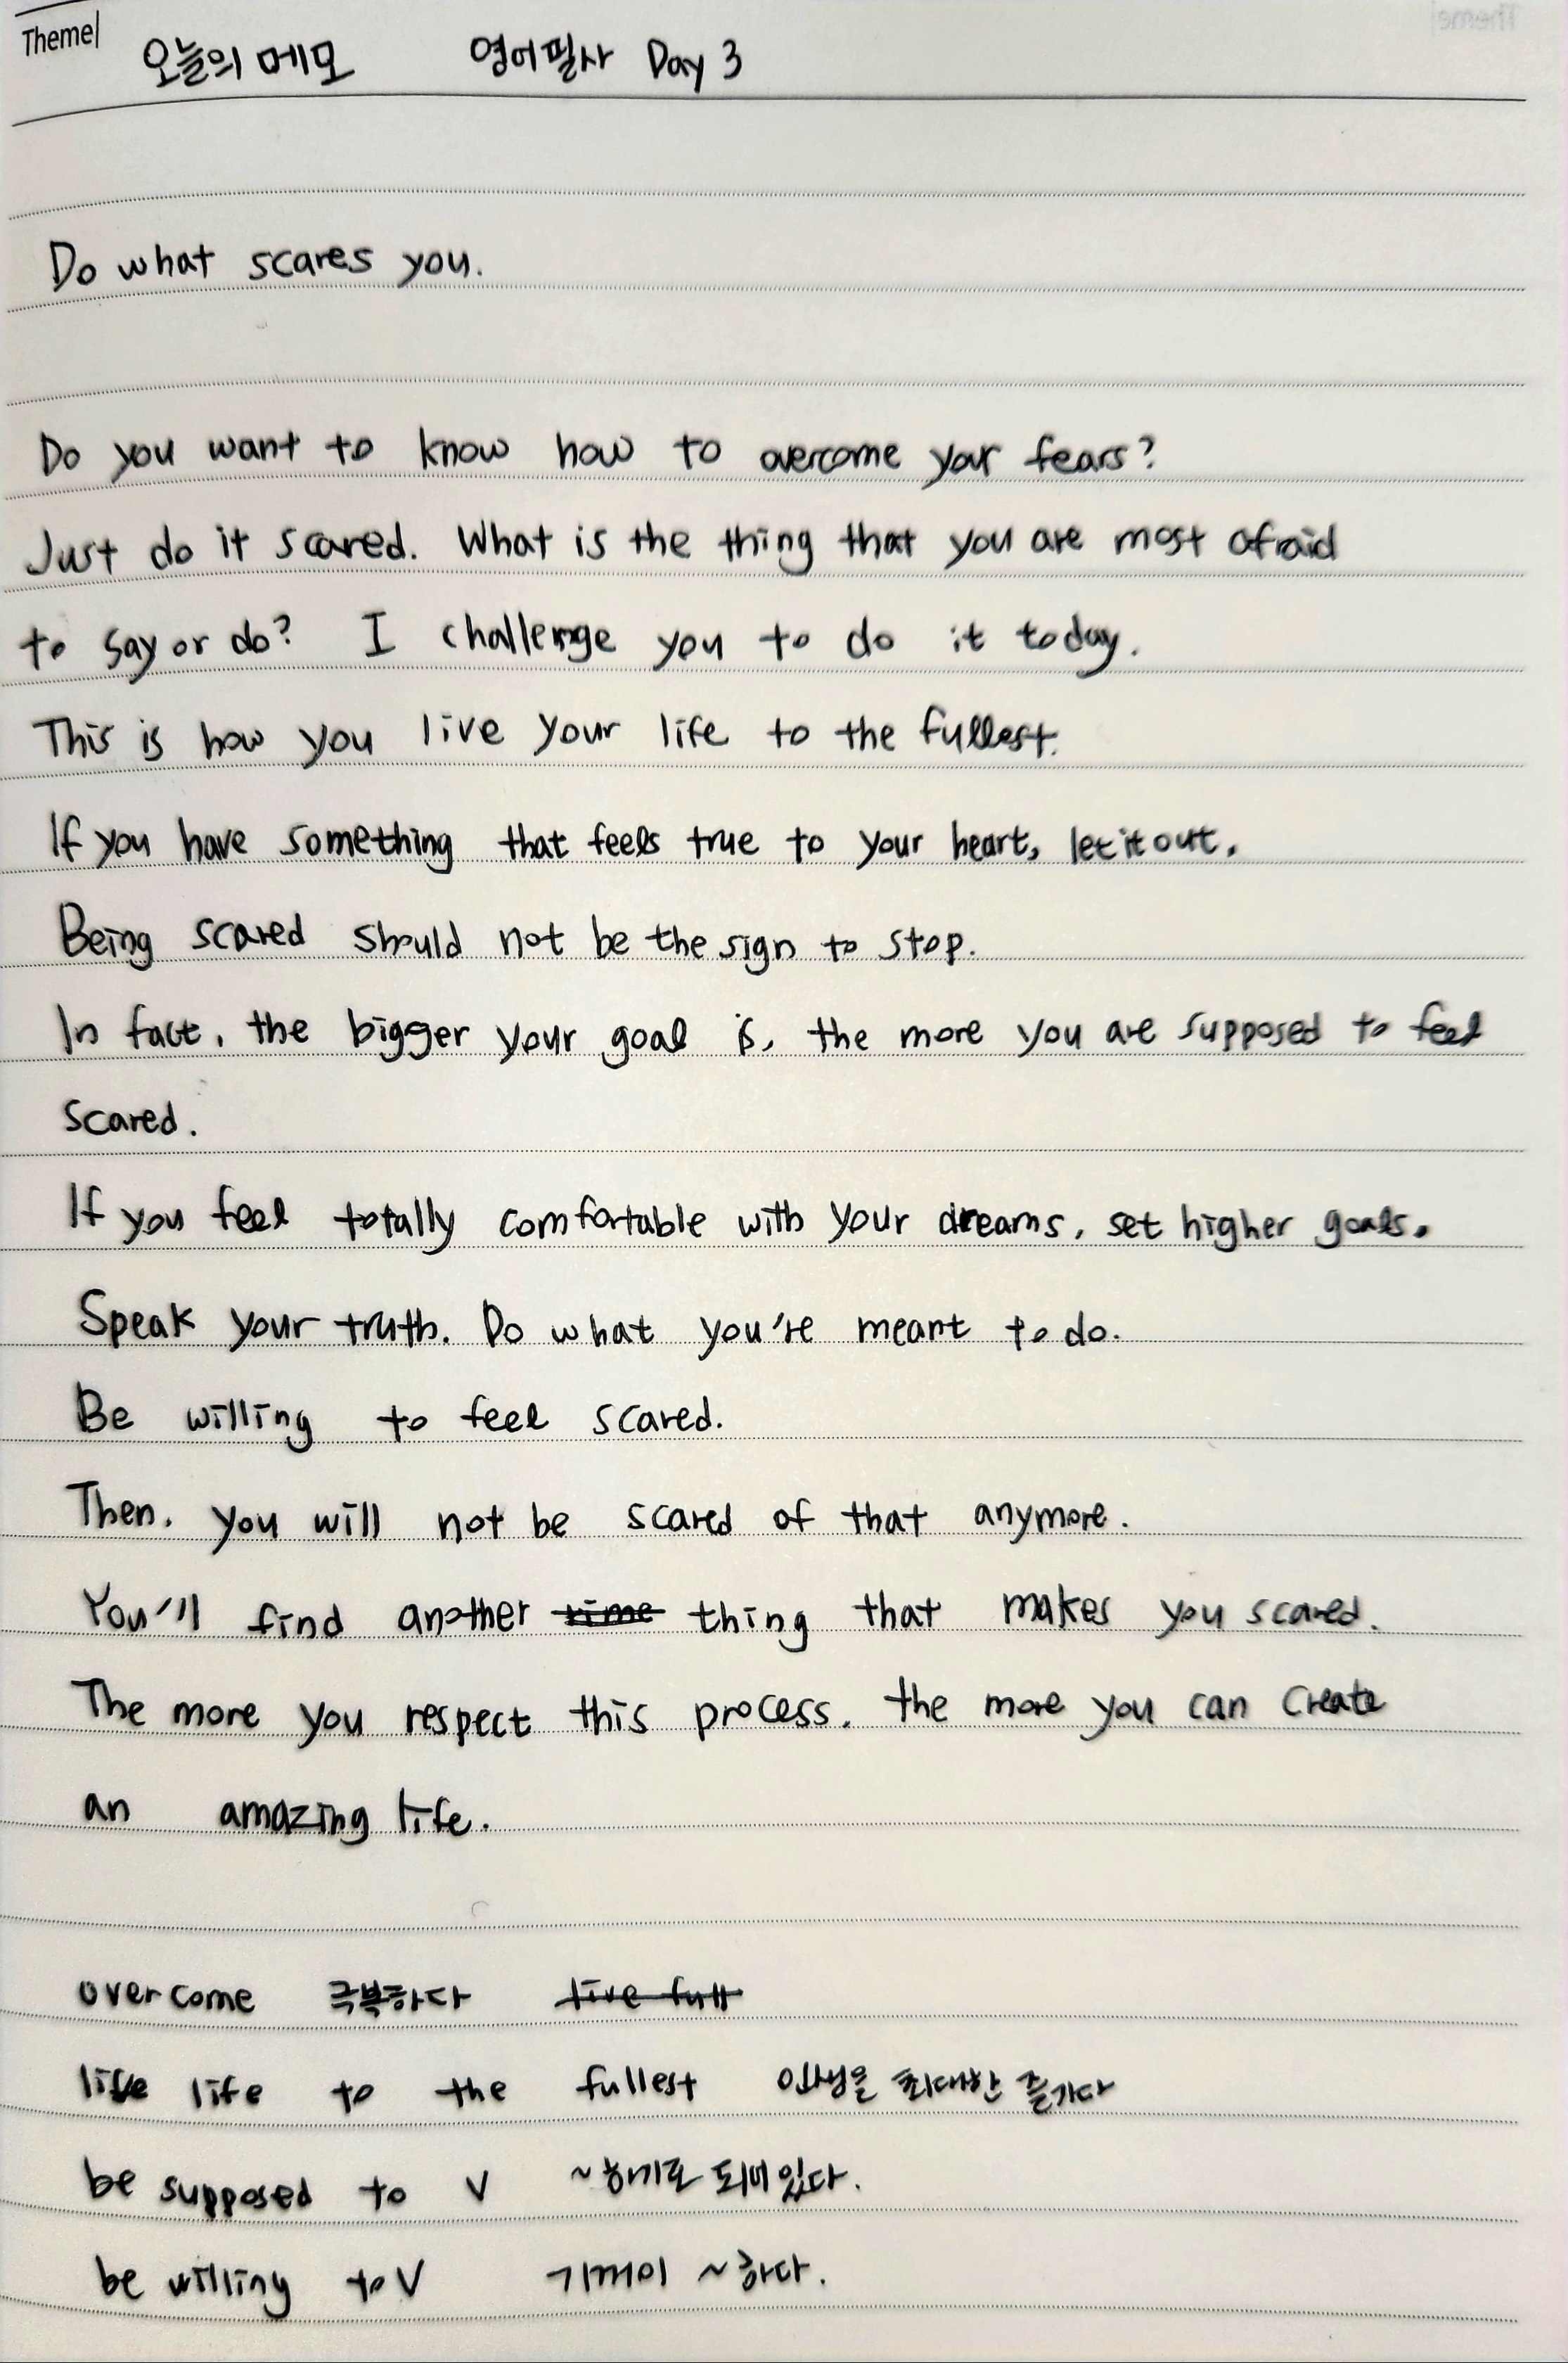 Theme| 오늘의 메모 영어필사 Day 3
Do what scares you.
Do you want to know how to overcome your fears?
Just do it scared. What is the thing that you are most afraid
to say or do? I challenge you to do it today.
This is how you live your life to the fullest.
If you have something that feels true to your heart, let it out.
Being scared should not be the sign to stop.
In fact, the bigger your goal is, the more you are supposed to feel
scared.
If you feel totally comfortable with your dreams, set higher goals.
Speak your truth. Do what you're meant to do.
Be willing to feel scared.
Then, you will not be scared of that anymore.
You'll find another time thing that makes you scared.
The more you respect this process, the more you can create
an amazing life.
overcome 극복하다 live full
live life to the fullest 인생을 최대한 즐기다
be supposed to V ~하기로 되어 있다.
be willing to V 기꺼이 ~하다.